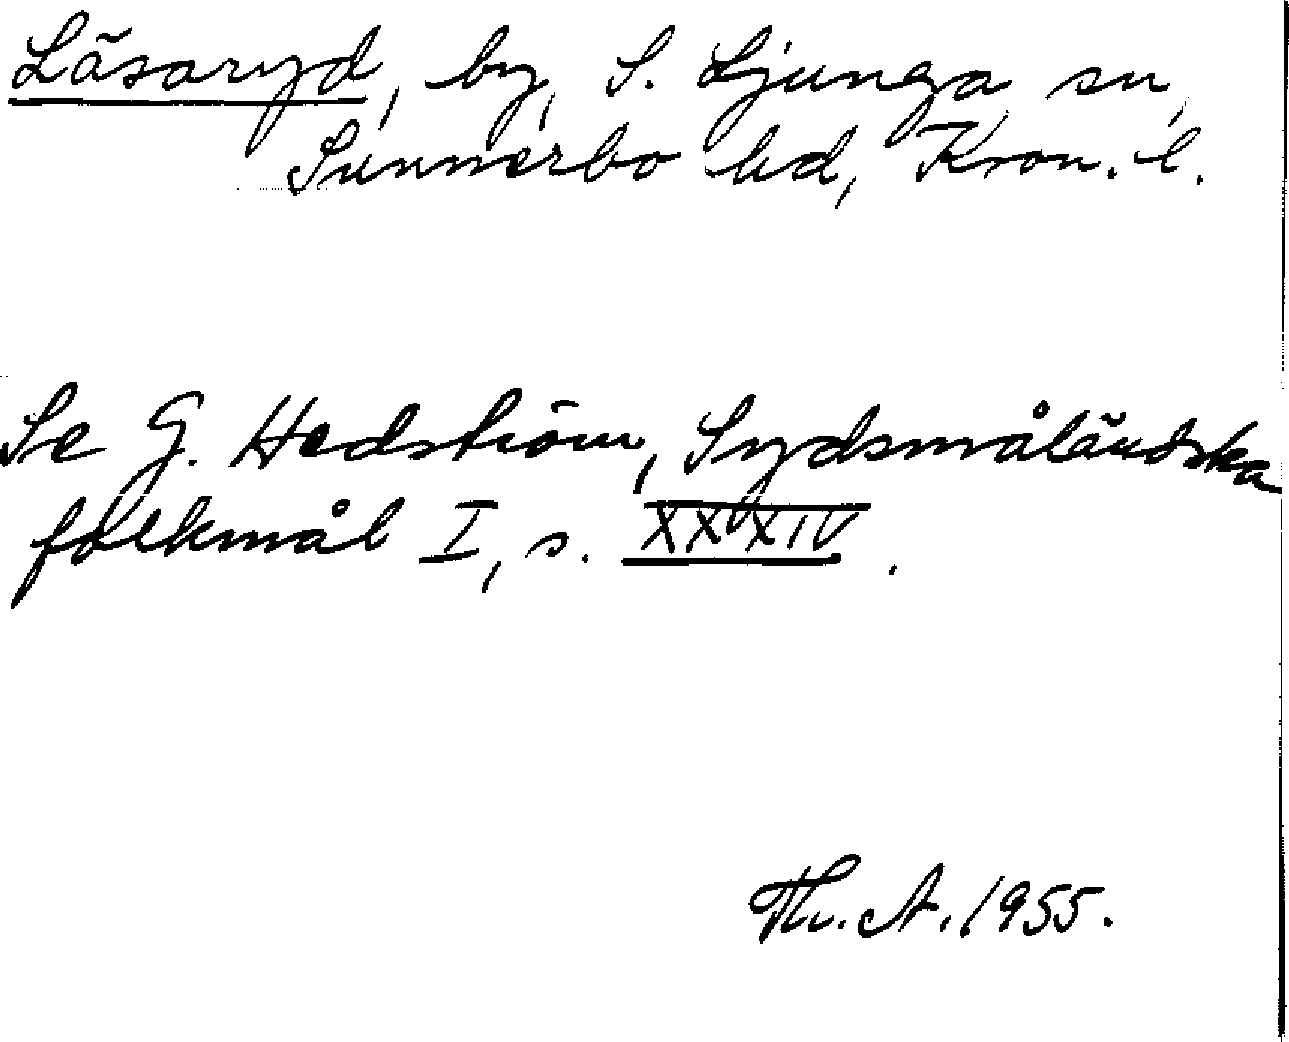 Läsaryd, by, S. Ljunga sn,
Sunnerbo hd, Kron. l.
Se G. Hedström, Sydsmåländska
folkmål I, s. XXXXIV.
Th. A. 1955.